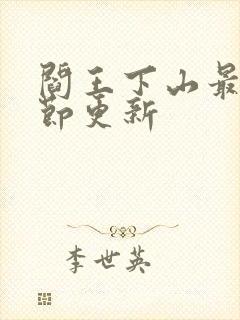 閻王下山最
節更新
李世英